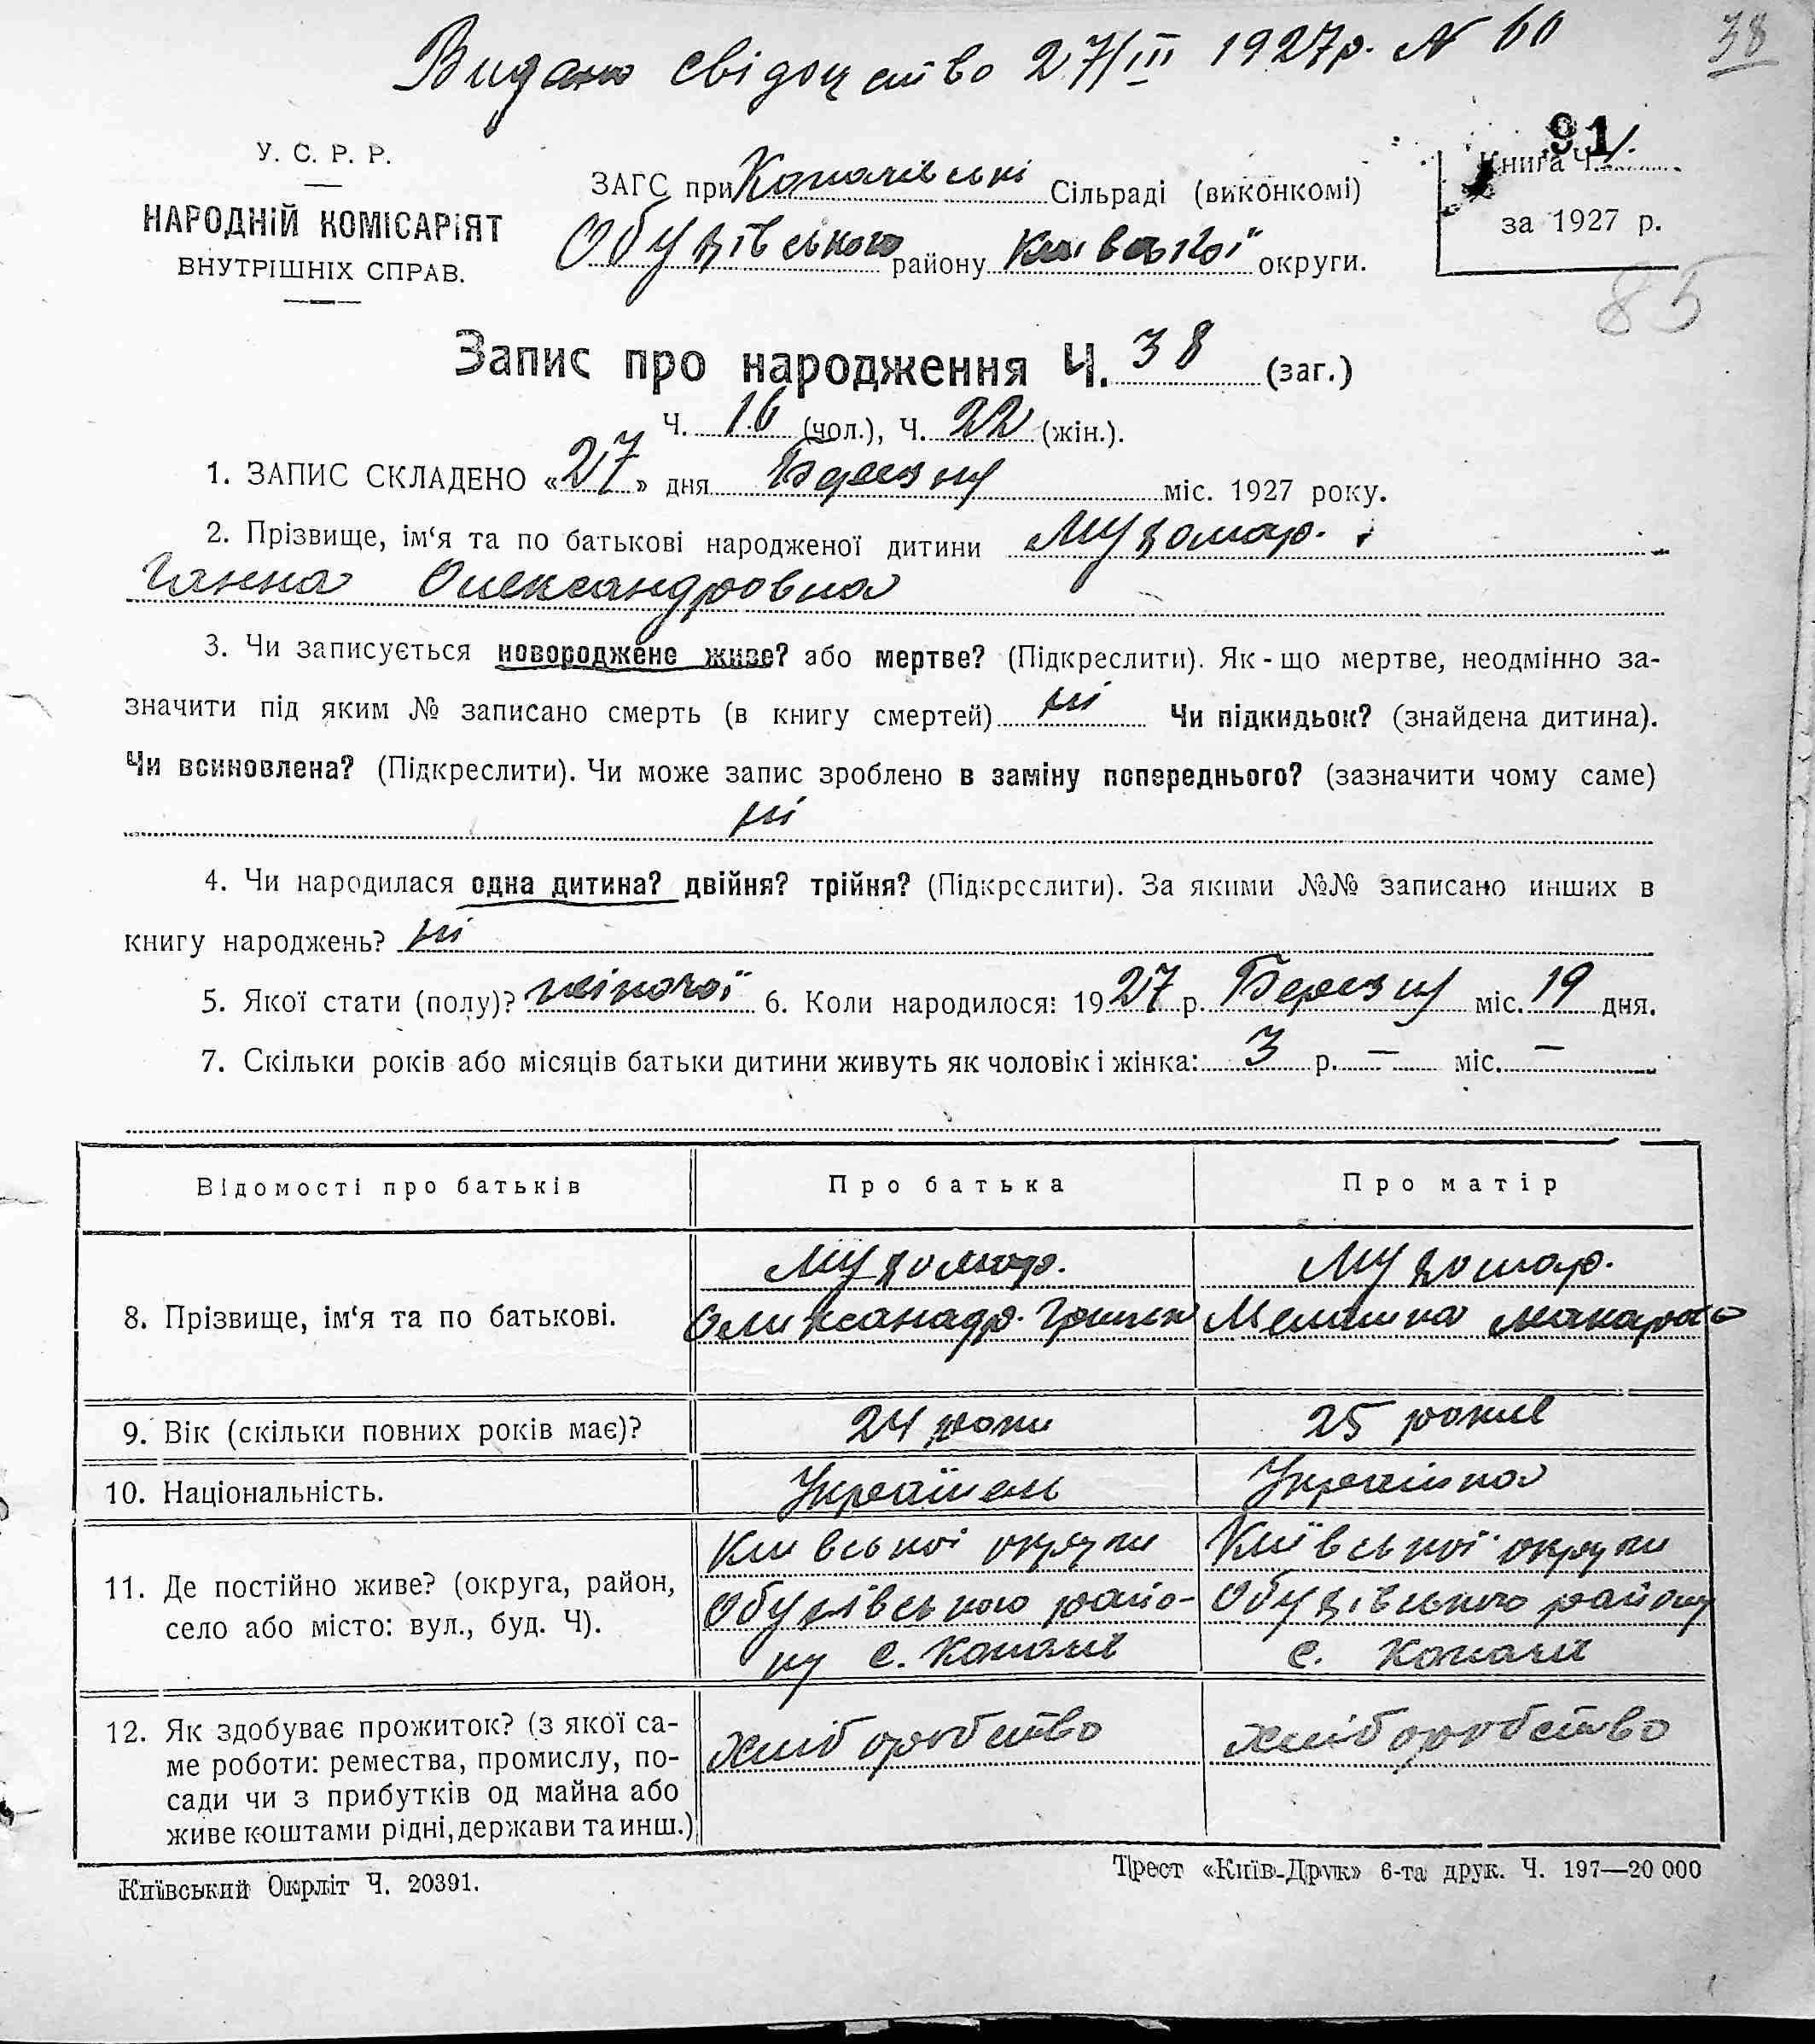 Видано свідоцтво 27/III 1927р. N 60
38
У. С. Р. Р.
НАРОДНІЙ КОМІСАРІЯТ
ВНУТРІШНІХ СПРАВ.
ЗАГС при Копачівські Сільраді (виконкомі)
Обухівського району Київської округи.
91
Книга Ч. 1.
за 1927 р.
85
Запис про народження Ч. 38 (заг.)
Ч. 16 (чол.), Ч. 22 (жін.).
1. ЗАПИС СКЛАДЕНО «27» дня Березня міс. 1927 року.
2. Прізвище, ім‘я та по батькові народженої дитини
Ганна Олександровна
3. Чи записується новороджене живе? або мертве? (Підкреслити). Як-що мертве, неодмінно за-
значити під яким № записано смерть (в книгу смертей) ні Чи підкидьок? (знайдена дитина).
Чи всиновлена? (Підкреслити). Чи може запис зроблено в заміну попереднього? (зазначити чому саме)
ні
4. Чи народилася одна дитина? двійня? трійня? (Підкреслити). За якими №№ записано инших в
книгу народжень? ні
5. Якої стати (полу)? жіночої 6. Коли народилося: 1927 р. Березня міс. 19 дня.
7. Скільки років або місяців батьки дитини живуть як чоловік і жінка: 3 р. — міс. —
Відомості про батьків Про батька Про матір
8. Прізвище, ім‘я та по батькові.
Мелашка Макаров
9. Вік (скільки повних років має)? 24 роки 25 років
10. Національність. Українець Українка
11. Де постійно живе? (округа, район,
село або місто: вул., буд. Ч).
Київської округи
Обухівського райо-
ну с. Копачів
Київської округи
Обухівського району
с. Копачів
12. Як здобуває прожиток? (з якої са-
ме роботи: ремества, промислу, по-
сади чи з прибутків од майна або
живе коштами рідні, держави та инш.)
хліборобство
хліборобство
Київський Окрліт Ч. 20391.
Трест «Київ-Друк» 6-та друк. Ч. 197—20 000